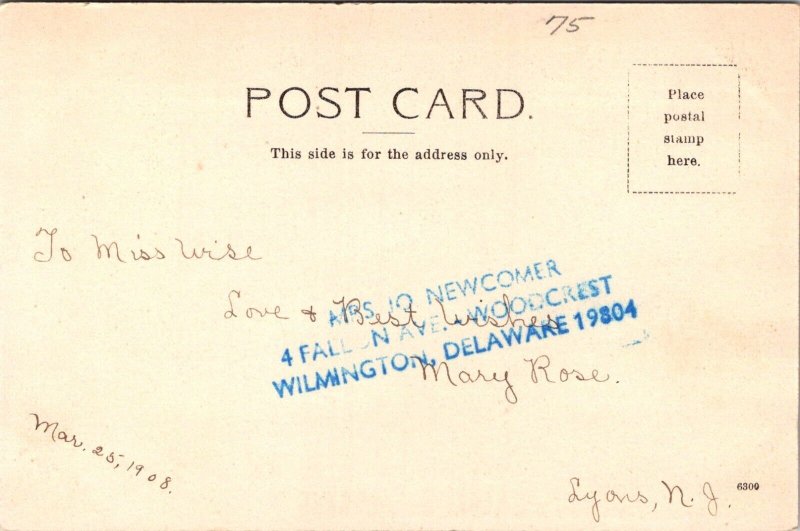 75
POST CARD.
This side is for the address only.
Place
postal
stamp
here.
To Miss Wise
Love & Best Wishes
Mary Rose.
MRS. JO NEWCOMER
4 AVE. - WOODCREST
WILMINGTON, DELAWARE 19804
Mar. 25, 1908.
Lyons, N. J.
6309